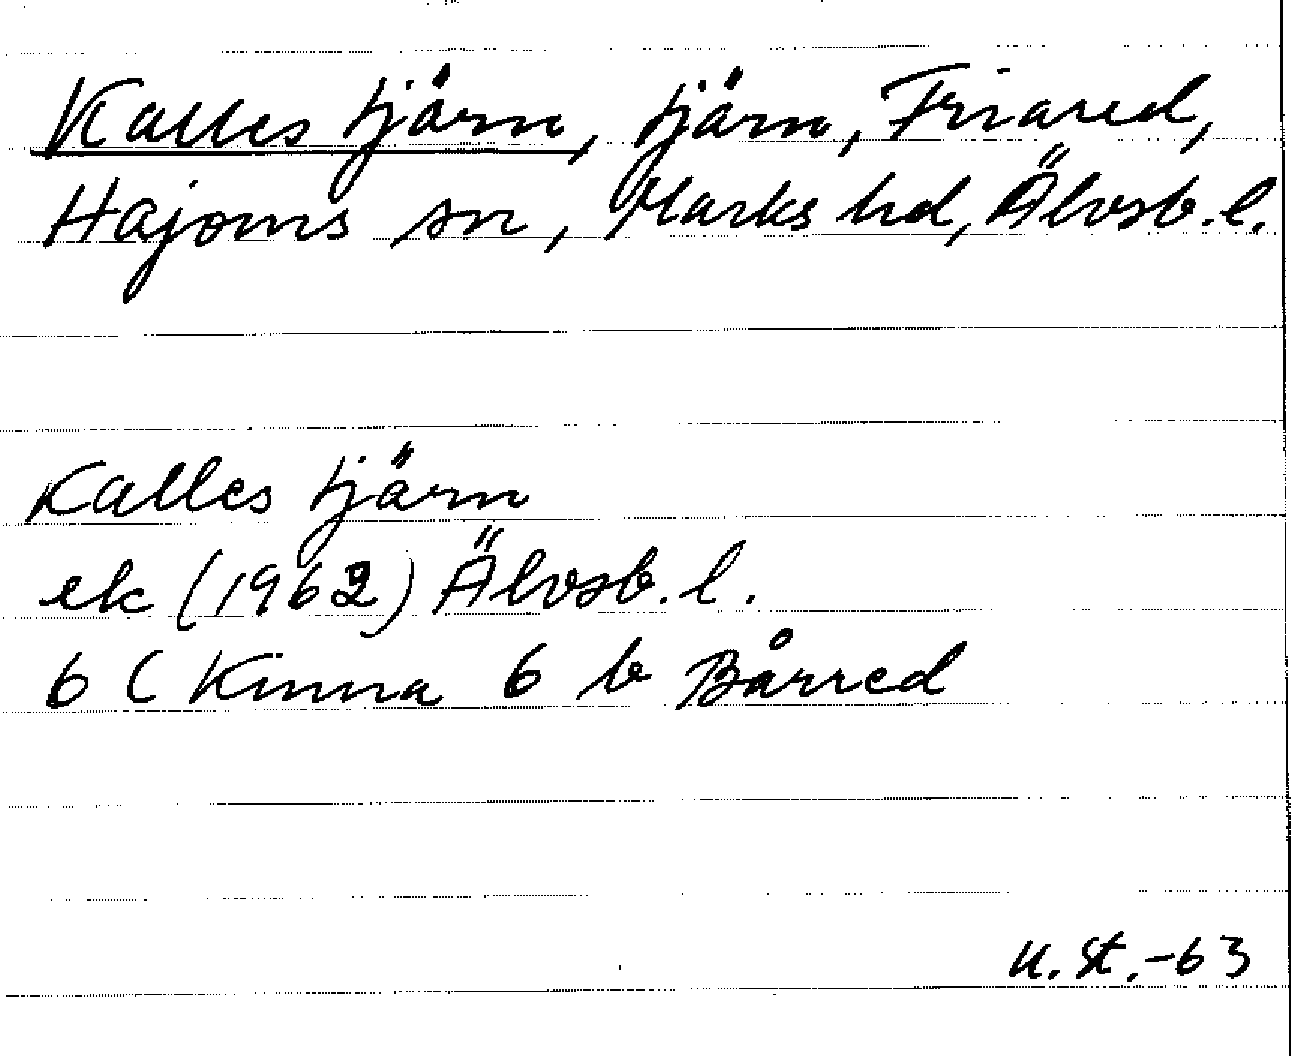 Kalles tjärn, tjärn, Friared,
Hajoms sn, Marks hd, Älvsb. l.
Kalles tjärn
ek (1962) Älvsb. l.
6 C Kinna 6 b Bårred
U. St. -63